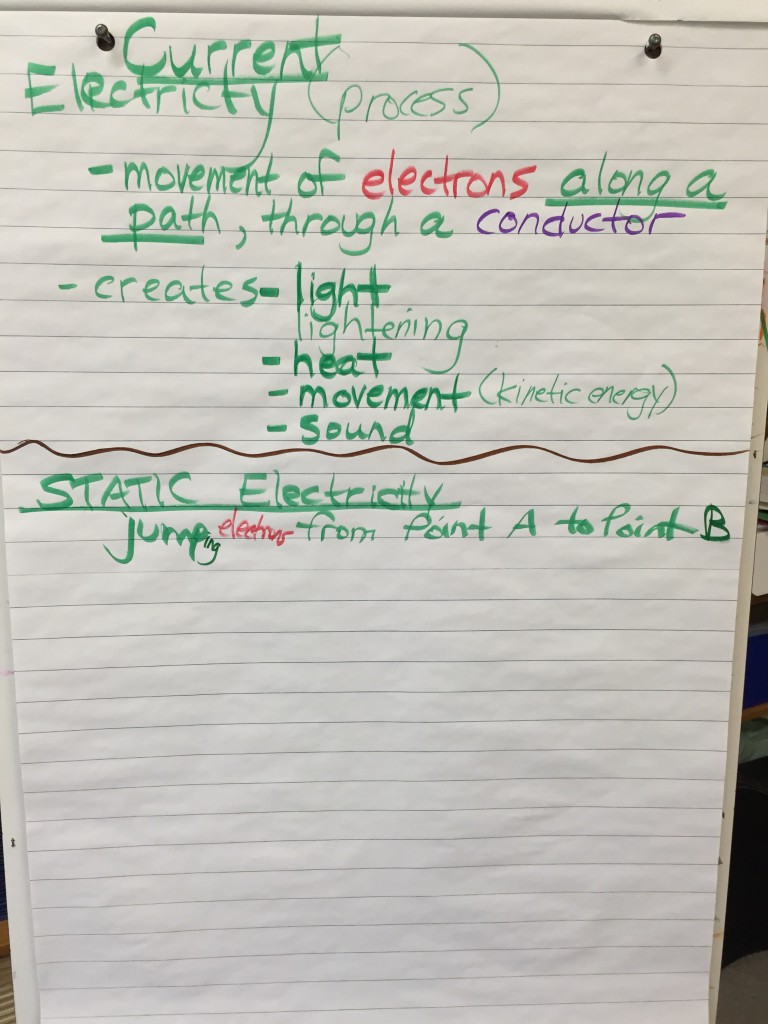 Current
Electricty (process)
- movement of electrons along a
path, through a conductor
- creates - light
lightening
- heat
- movement (kinetic energy)
- sound
STATIC Electricity
jumping electrons from Point A to Point B